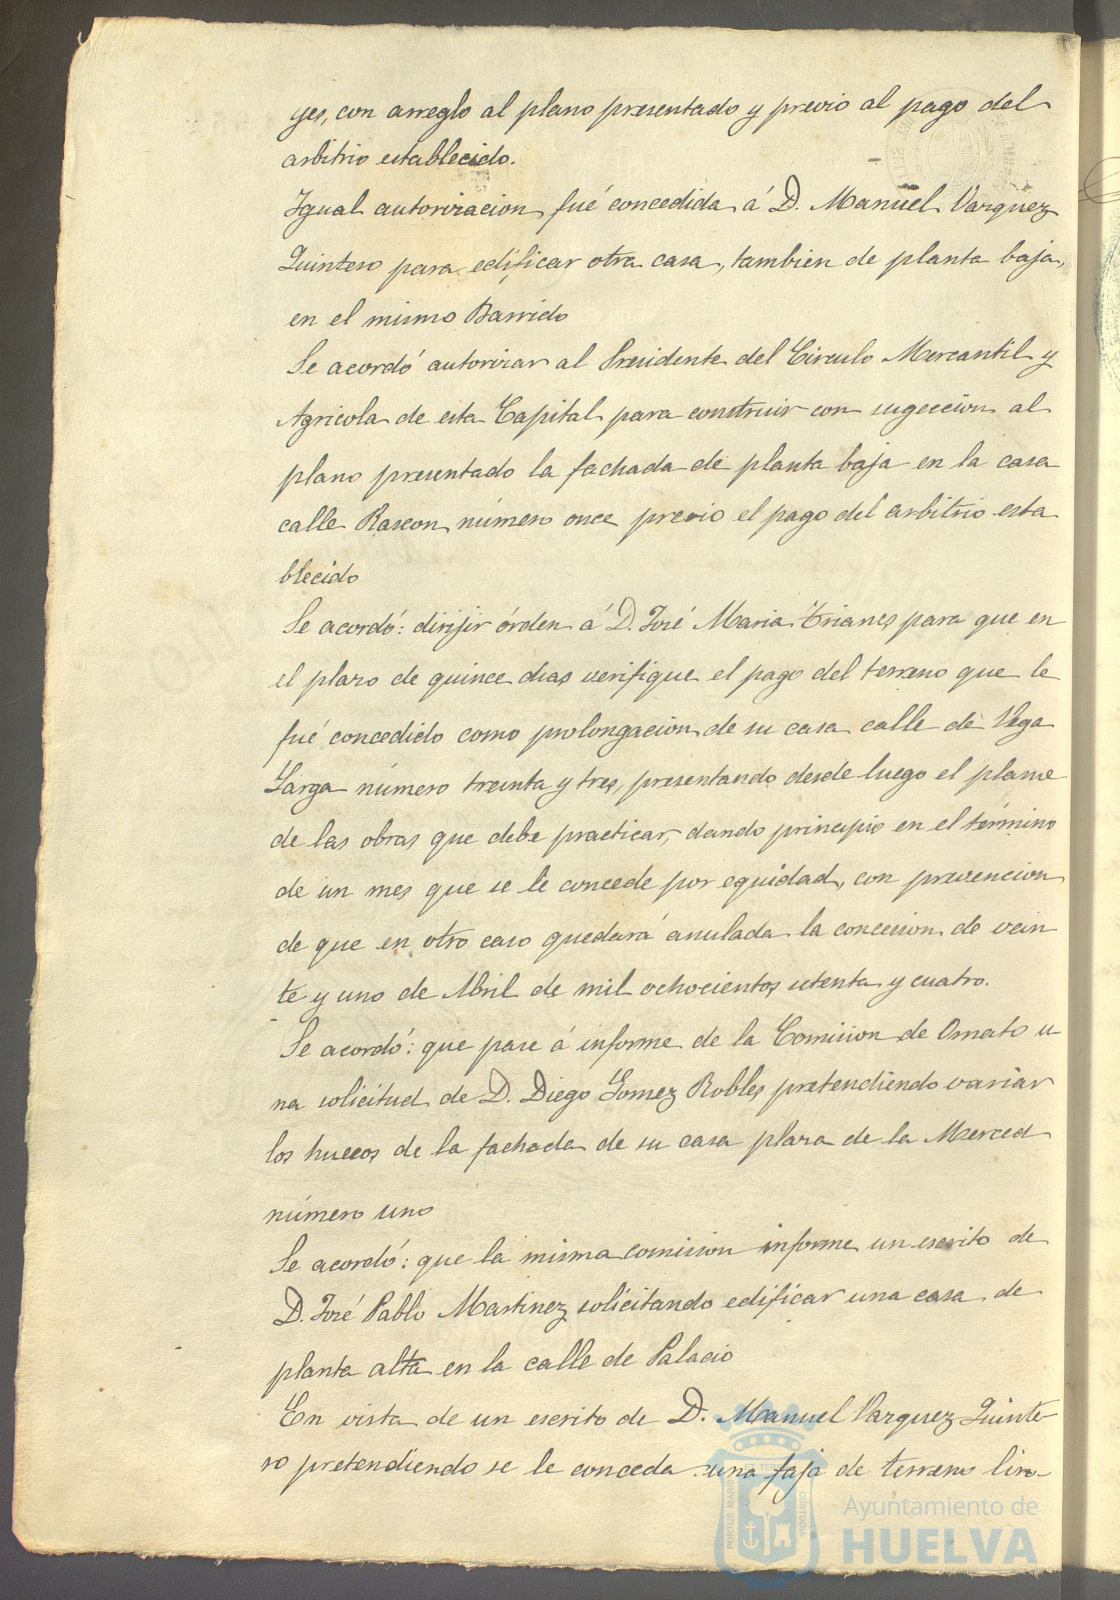 yes, con arreglo al plano presentado y previo al pago del
arbitrio establecido.
Igual autorizacion fué concedida á D. Manuel Vazquez
Quintero para edificar otra casa, tambien de planta baja,
en el mismo Barrido
Se acordó autorizar al Presidente del Circulo Mercantil y
Agricola de esta Capital para construir con sugeccion al
plano presentado la fachada de planta baja en la casa
calle Rascon número once previo el pago del arbitrio esta
blecido
Se acordó: dirijir órden á D. José Maria Trianes para que en
el plazo de quince dias verifique el pago del terreno que le
fué concedido como prolongacion de su casa calle de Vega
Larga número treinta y tres, presentando desde luego el plano
de las obras que debe practicar, dando principio en el término
de un mes que se le concede por equidad, con prevencion
de que en otro caso quedará anulada la concesion de vein
te y uno de Abril de mil ochocientos setenta y cuatro.
Se acordó: que pase á informe de la Comision de Ornato u-
na solicitud de D. Diego Gomez Robles pretendiendo variar
los huecos de la fachada de su casa plaza de la Merced
número uno
Se acordó: que la misma comision informe un escrito de
D. José Pablo Martinez solicitando edificar una casa de
planta alta en la calle de Palacio
En vista de un escrito de D. Manuel Vazquez Quinte-
ro pretendiendo se le conceda una faja de terreno lin-
PORTUS MARIS
CUSTODIA
Ayuntamiento de
HUELVA